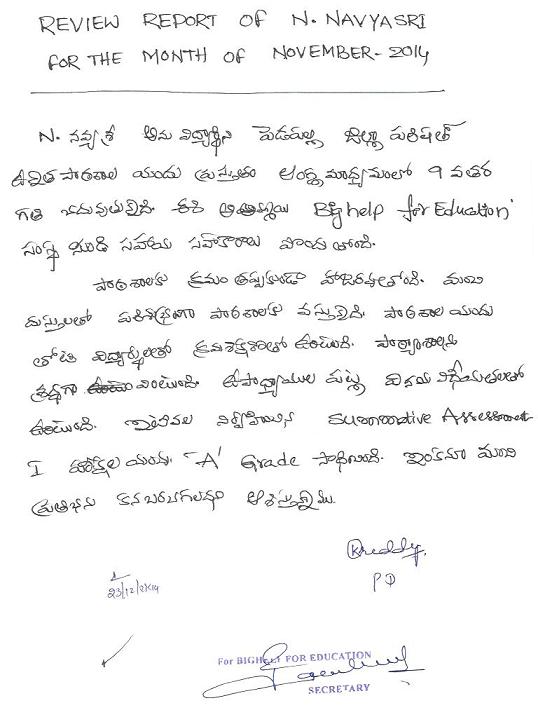 REVIEW REPORT OF N. NAVYASRI
FOR THE MONTH OF NOVEMBER - 2014
N. నవ్యశ్రీ అను విద్యార్థిని పెడపల్లి జిల్లా పరిషత్
ఉన్నత పాఠశాల యందు ప్రస్తుతం ఆంధ్ర మాధ్యమంలో 9 వ తర
గతి చదువుతున్నది. ఈ అమ్మాయి 'Bighelp for Education'
సంస్థ నుండి సహాయ సహకారాలు పొందుతోంది.
పాఠశాలకు క్రమం తప్పకుండా హాజరవుతోంది. మంచి
దుస్తులతో పరిశుభ్రంగా పాఠశాలకు వస్తున్నది. పాఠశాల యందు
తోటి విద్యార్థులతో క్రమశిక్షణతో ఉంటుంది. పాఠ్యాంశాలను
శ్రద్ధగా వింటుంది. ఉపాధ్యాయుల పట్ల వినయ విధేయతలతో
ఉంటుంది. ఇటీవల నిర్వహించిన Summative Assessment
I పరీక్షల యందు 'A' Grade సాధించింది. ఇంకనూ మంచి
ప్రతిభను కనబరచగలదని ఆశిస్తున్నాము.
Kreddy.
PD
23/12/2014
For BIGHELP FOR EDUCATION
SECRETARY